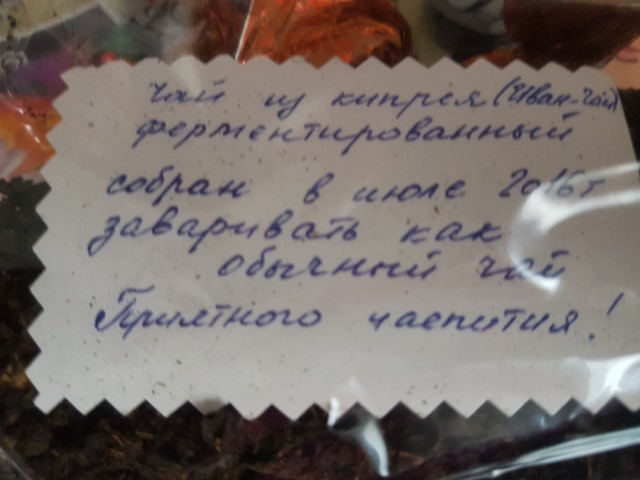 Чай из кипрея (Иван-Чай)
ферментированный
собран в июле 2016 г
заваривать как
обычный чай
Приятного чаепития!